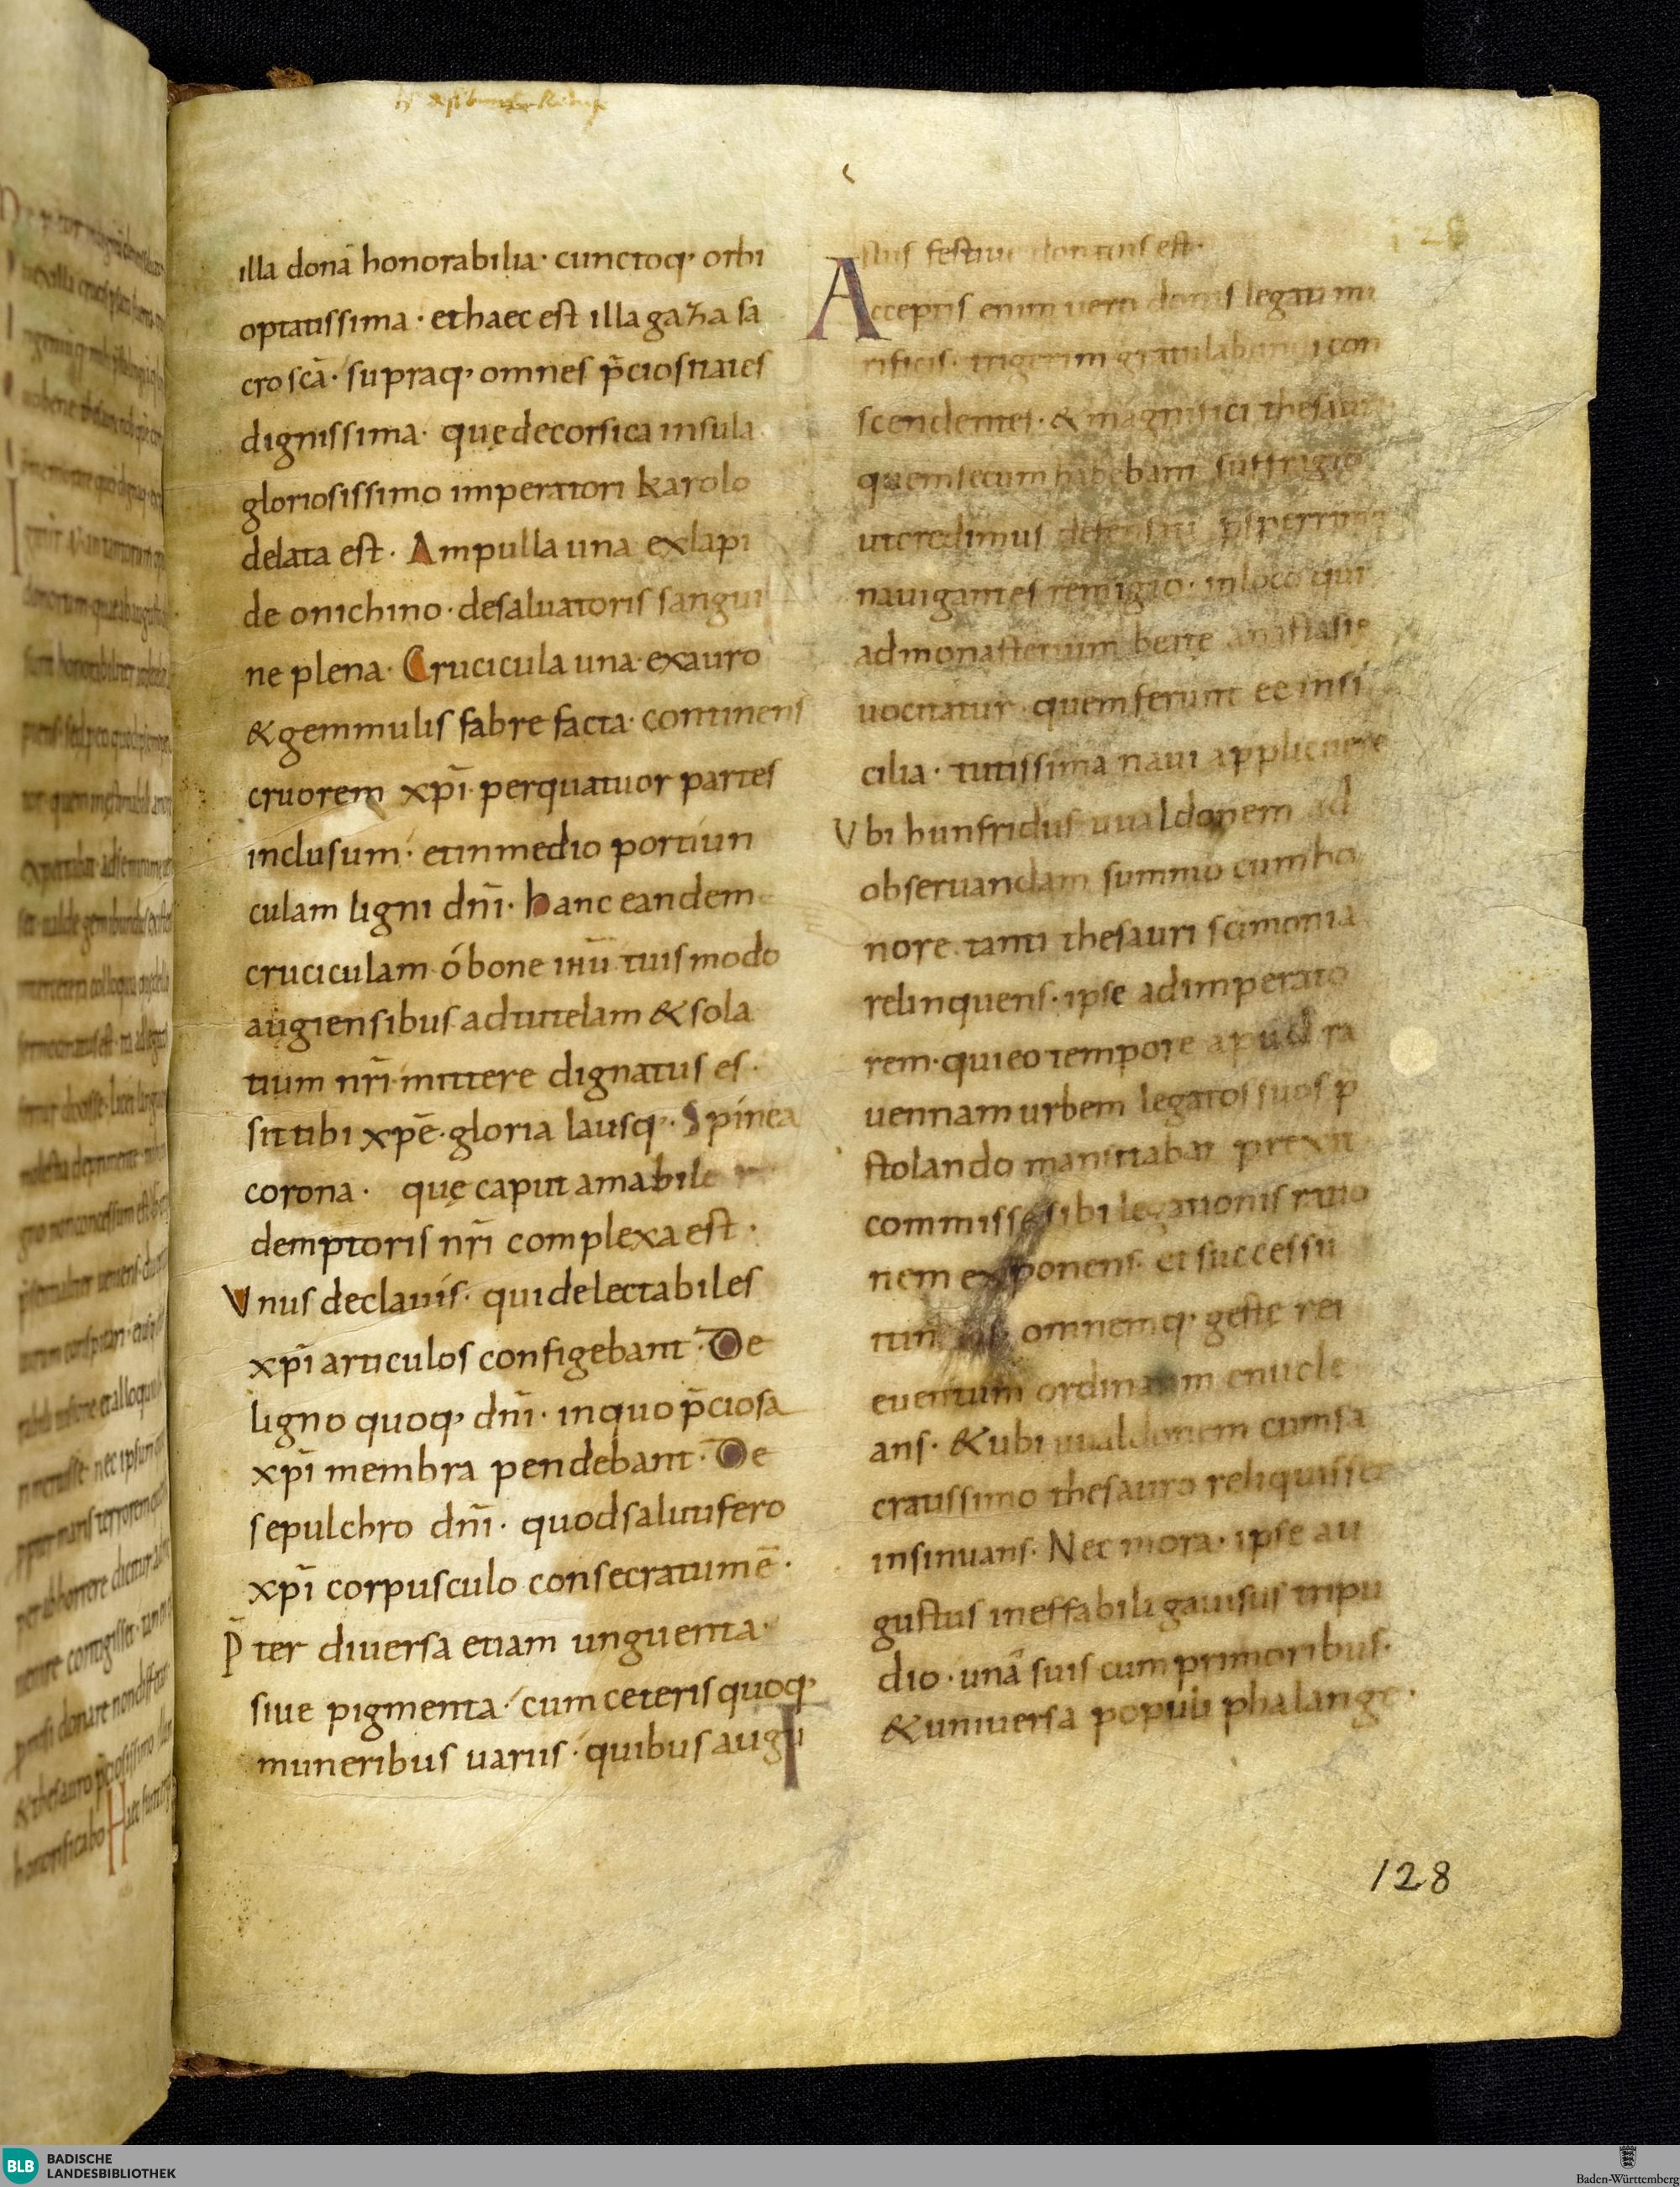 illa donā honorabilia · cunctoq· orbi
optatissima · et haec est illa gaza sa
cro scā · supraq· omnes p̄ciositates
dignissima · quę de corsica insula
gloriosissimo imperatori karolo
delata est · Ampulla una ex lapi
de onichino · de saluatoris sangui
ne plena · Crucicula una · ex auro
& gemmulis fabre facta · continens
cruorem xp̄i · per quatuor partes
inclusum · et in medio portiun
culam ligni dn̄i · hanc eandem
cruciculam · ó bone ihū · tuis modo
augiensibus ad tutelam & sola
tium nr̄i · mittere dignatus es ·
sit tibi xp̄e · gloria lausq· · Spinea
corona · quę caput amabile
demptoris nr̄i complexa est ·
Vnus de clauis · qui delectabiles
xp̄i articulos configebant · De
ligno quoq· dn̄i · in quo p̄ciosa
xp̄i membra pendebant · De
sepulchro dn̄i · quod salutifero
xp̄i corpusculo consecratum ē ·
P̄ter diuersa etiam unguenta ·
siue pigmenta · cum ceteris quoq·
muneribus uariis · quibus augu
stus festiue donatus est ·
Acceptis enim uero donis legati mi
rificis · trigerim gratulabundi con
scendentes · & magnifici thesauri
quem secum habebant suffragio
ut credimus
nauigantes remigio · in loco qui
ad monasterium beatę anastasię
uocitatur · quem ferunt eē in si
cilia · tutissima naui applicuere
Vbi hunfridus uualdonem ad
obseruandam summo cum ho
nore tanti thesauri scimonia
relinquens · ipse ad imperato
rem · qui eo tempore apud ra
uennam urbem legatos suos p
stolando manitabat prexit
commissę sibi legationis ratio
nem exponens · et successū
omnemq· gestę rei
euentum ordinatim enucle
ans · & ubi uualdonem cum sa
cratissimo thesauro reliquisset
insinuans · Nec mora · ipse au
gustus ineffabili gauisus tripu
dio · unā suis cum primoribus ·
& uniuersa populi phalange ·
128
128
BLB
BADISCHE
LANDESBIBLIOTHEK
Baden-Württemberg